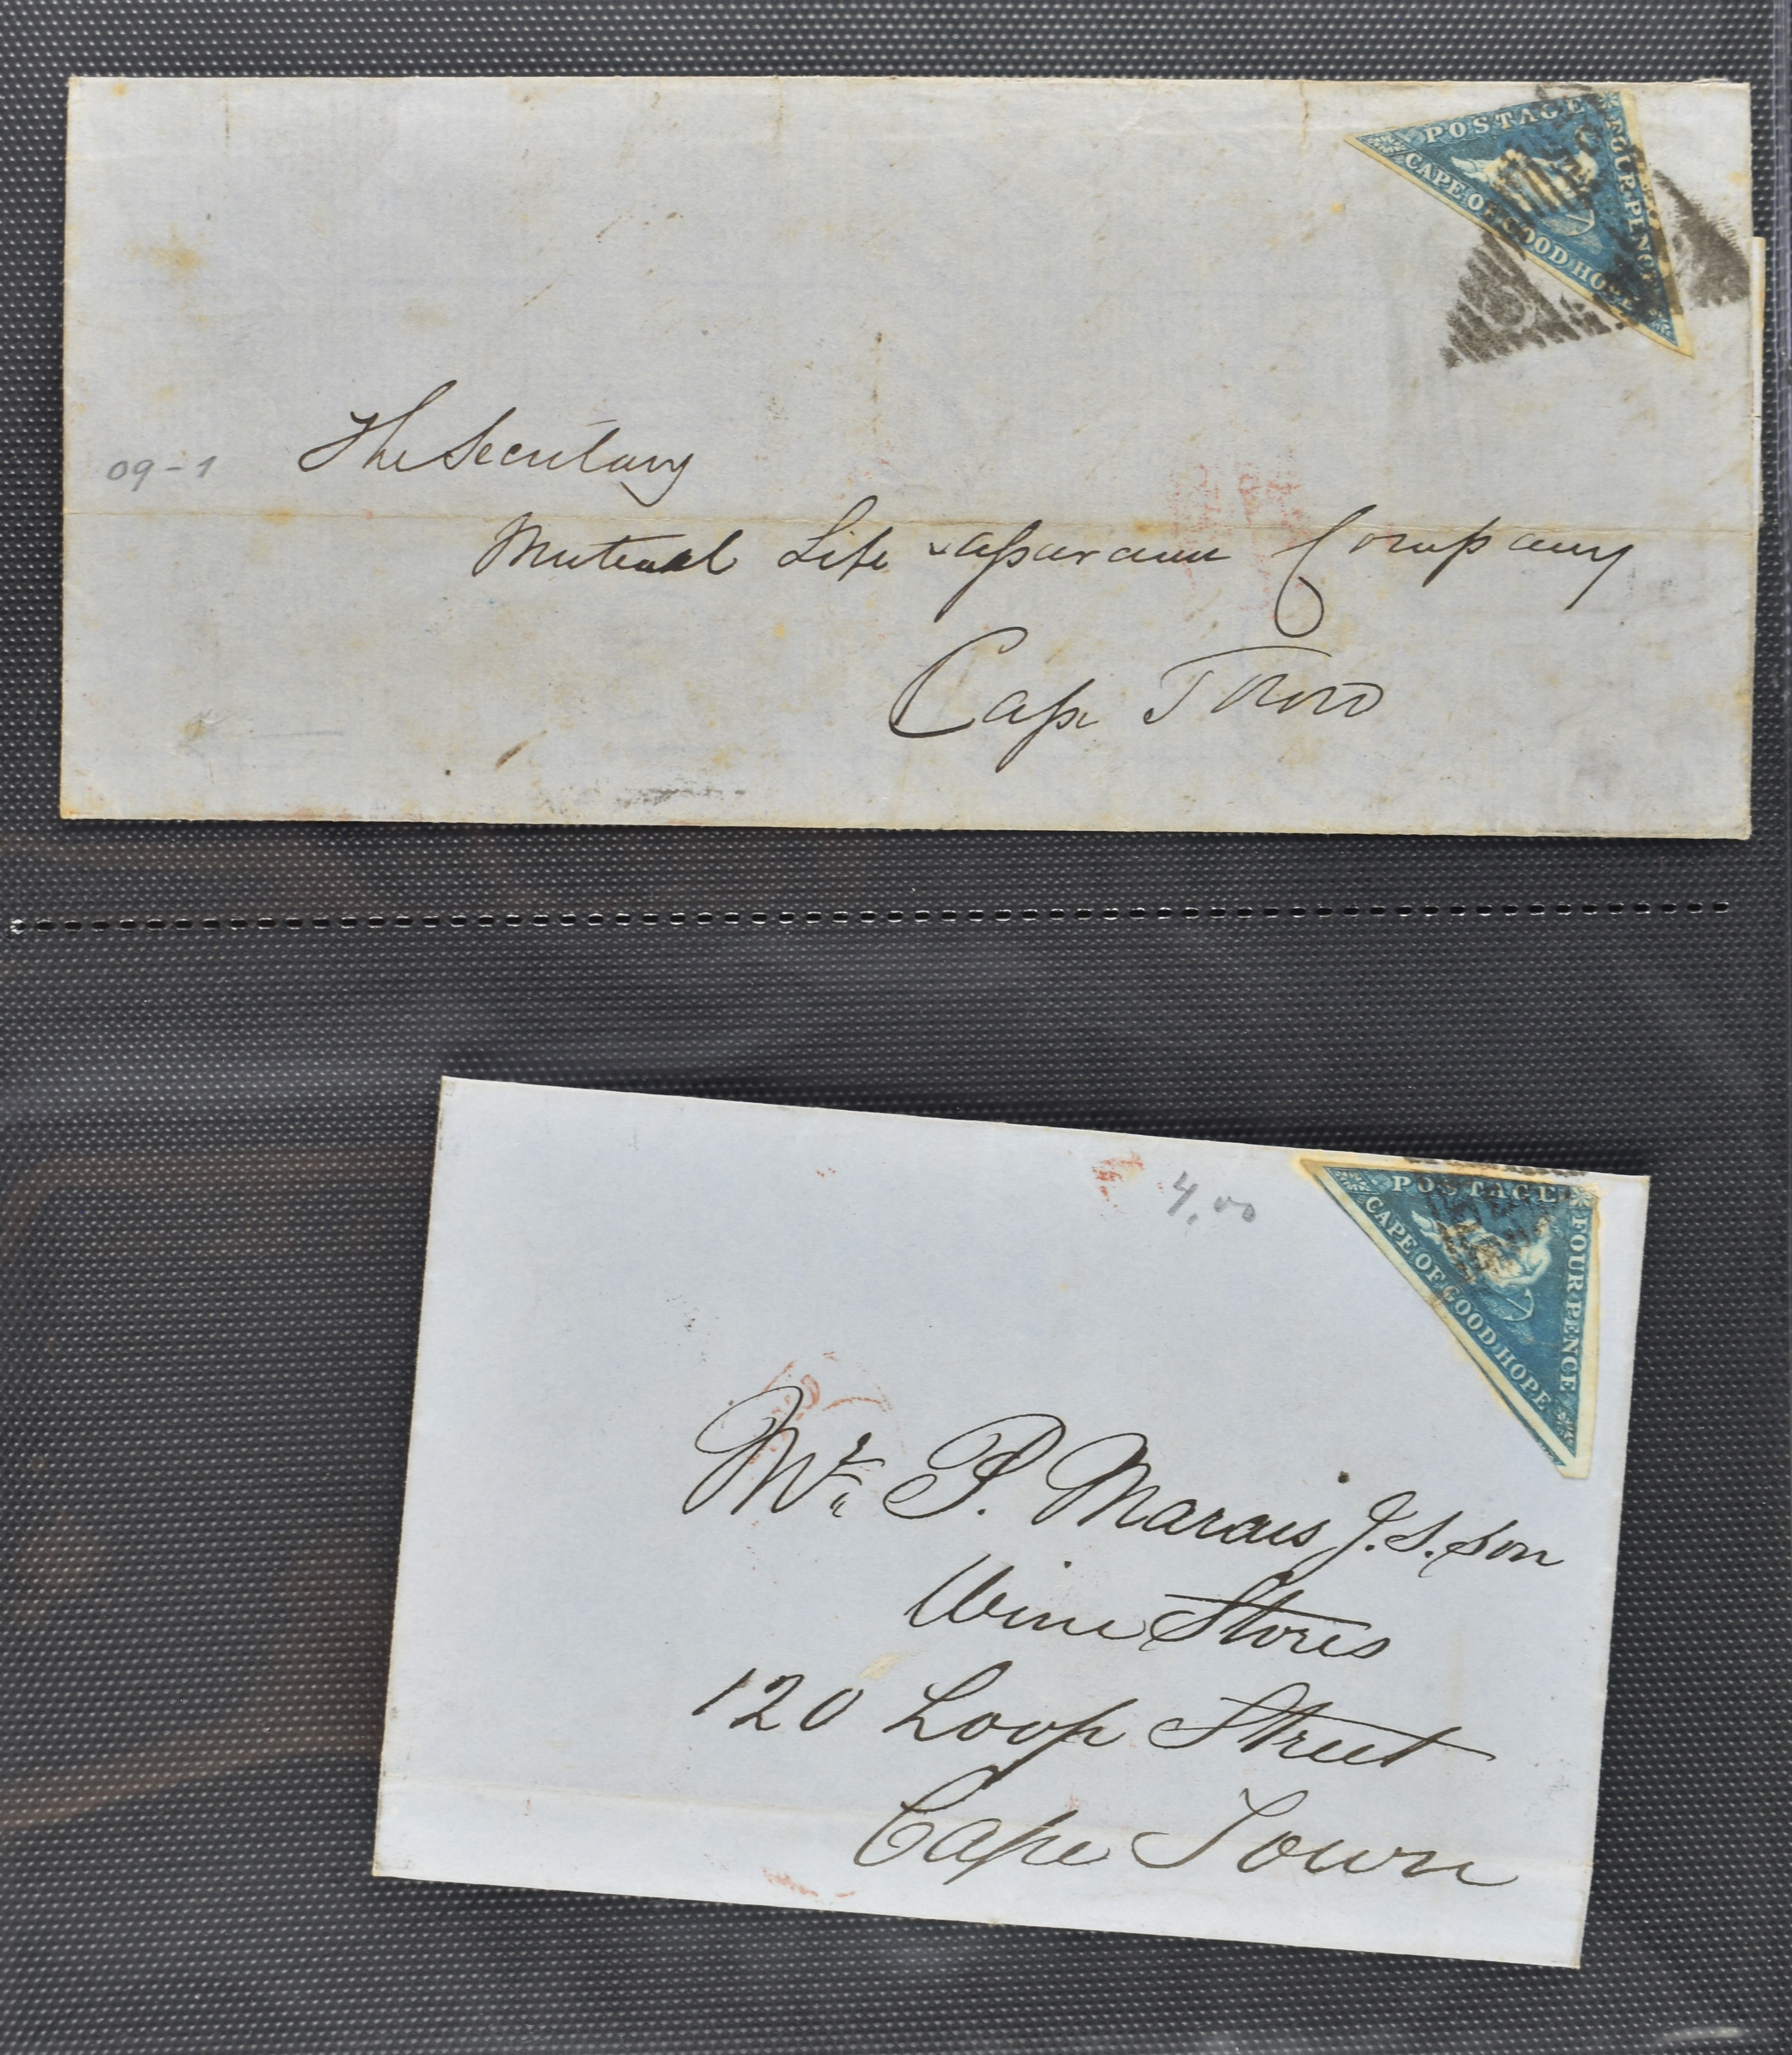 POSTAGE
FOUR PENCE
CAPE OF GOOD HOPE
09-1
The Secretary
Mutual Life Assurance Company
Cape Town
POSTAGE
FOUR PENCE
CAPE OF GOOD HOPE
4,00
Mr. P. Marais J.S. son
Wine Stores
120 Loop Street
Cape Town